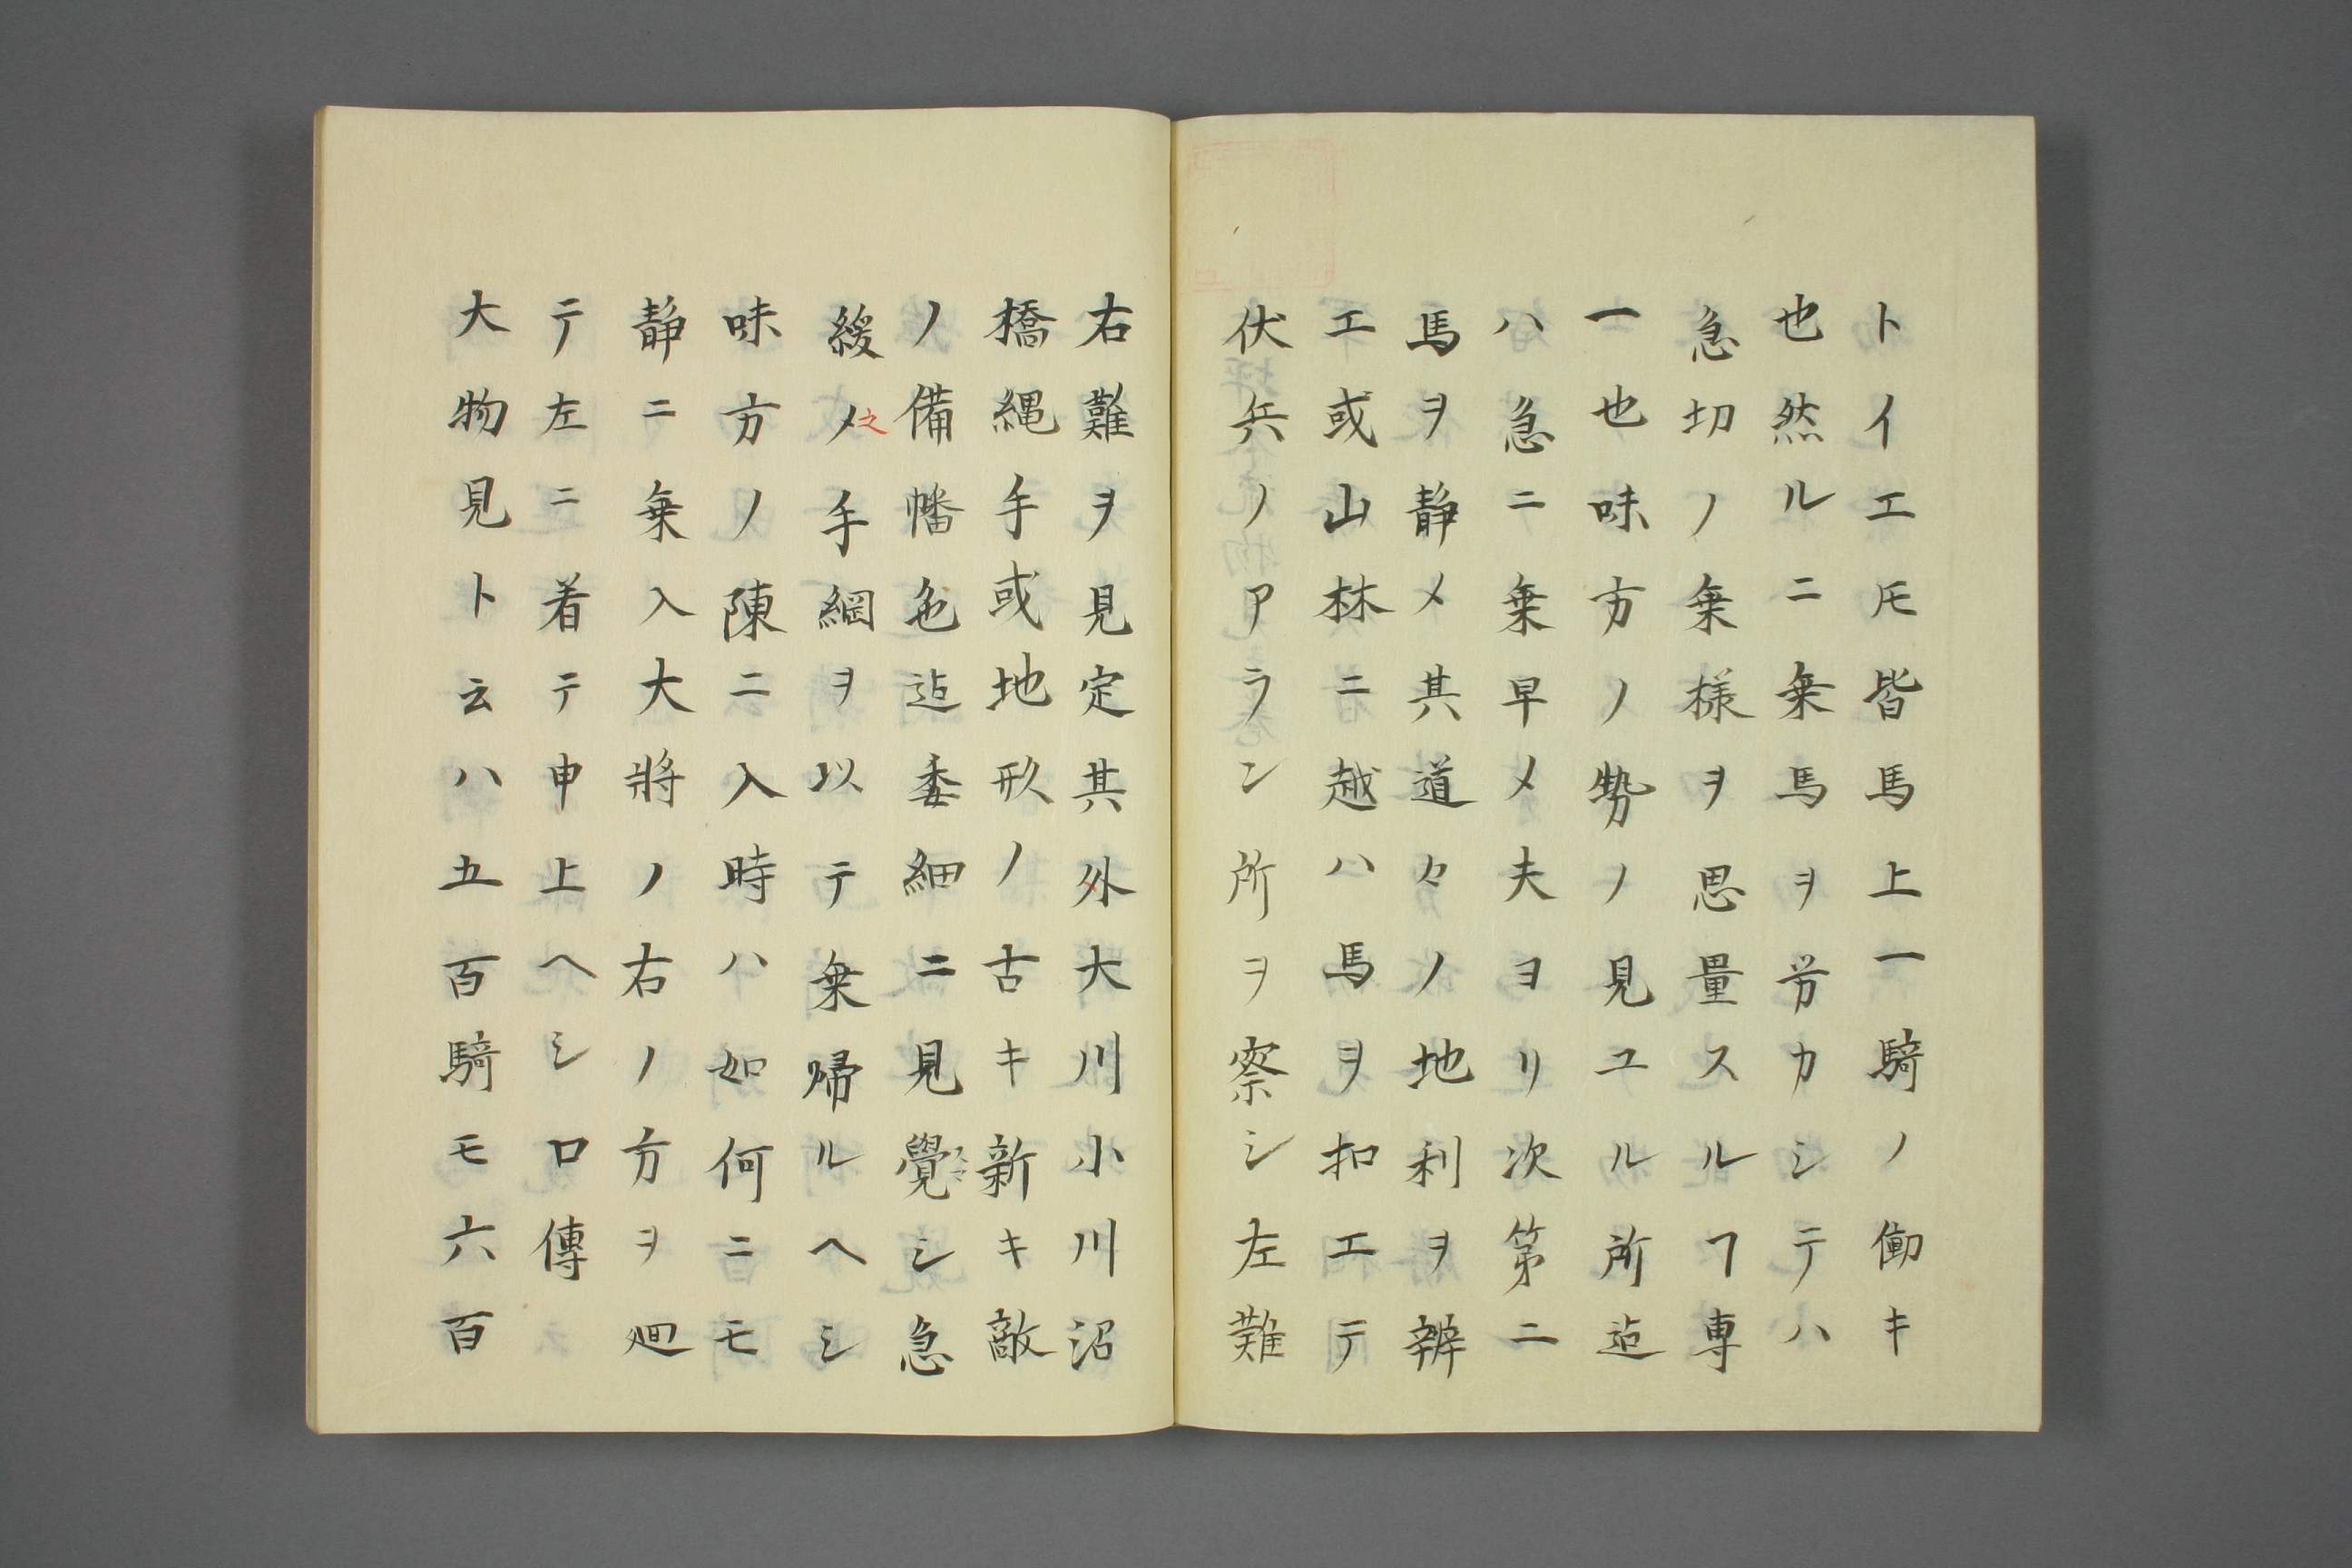 トイエ𪜈皆馬上一騎ノ働キ
也然ルニ乗馬ヲ労カシテハ
急切ノ乗様ヲ思量スルヿ専
一也味方ノ勢ノ見ユル所迠
ハ急ニ乗早メ夫ヨリ次第ニ
馬ヲ静メ其道々ノ地利ヲ辨
エ或山林ニ越ハ馬ヲ扣エテ
伏兵ノアラン所ヲ察シ左難
右難ヲ見定其外大川小川沼
橋縄手或地形ノ古キ新キ敵
ノ備幡色迠委細ニ見覺シ急
緩メ之手綱ヲ以テ乗帰ルヘシ
味方ノ陳ニ入時ハ如何ニモ
静ニ乗入大將ノ右ノ方ヲ廻
テ左ニ着テ申上ヘシ口傳
大物見ト云ハ五百騎モ六百